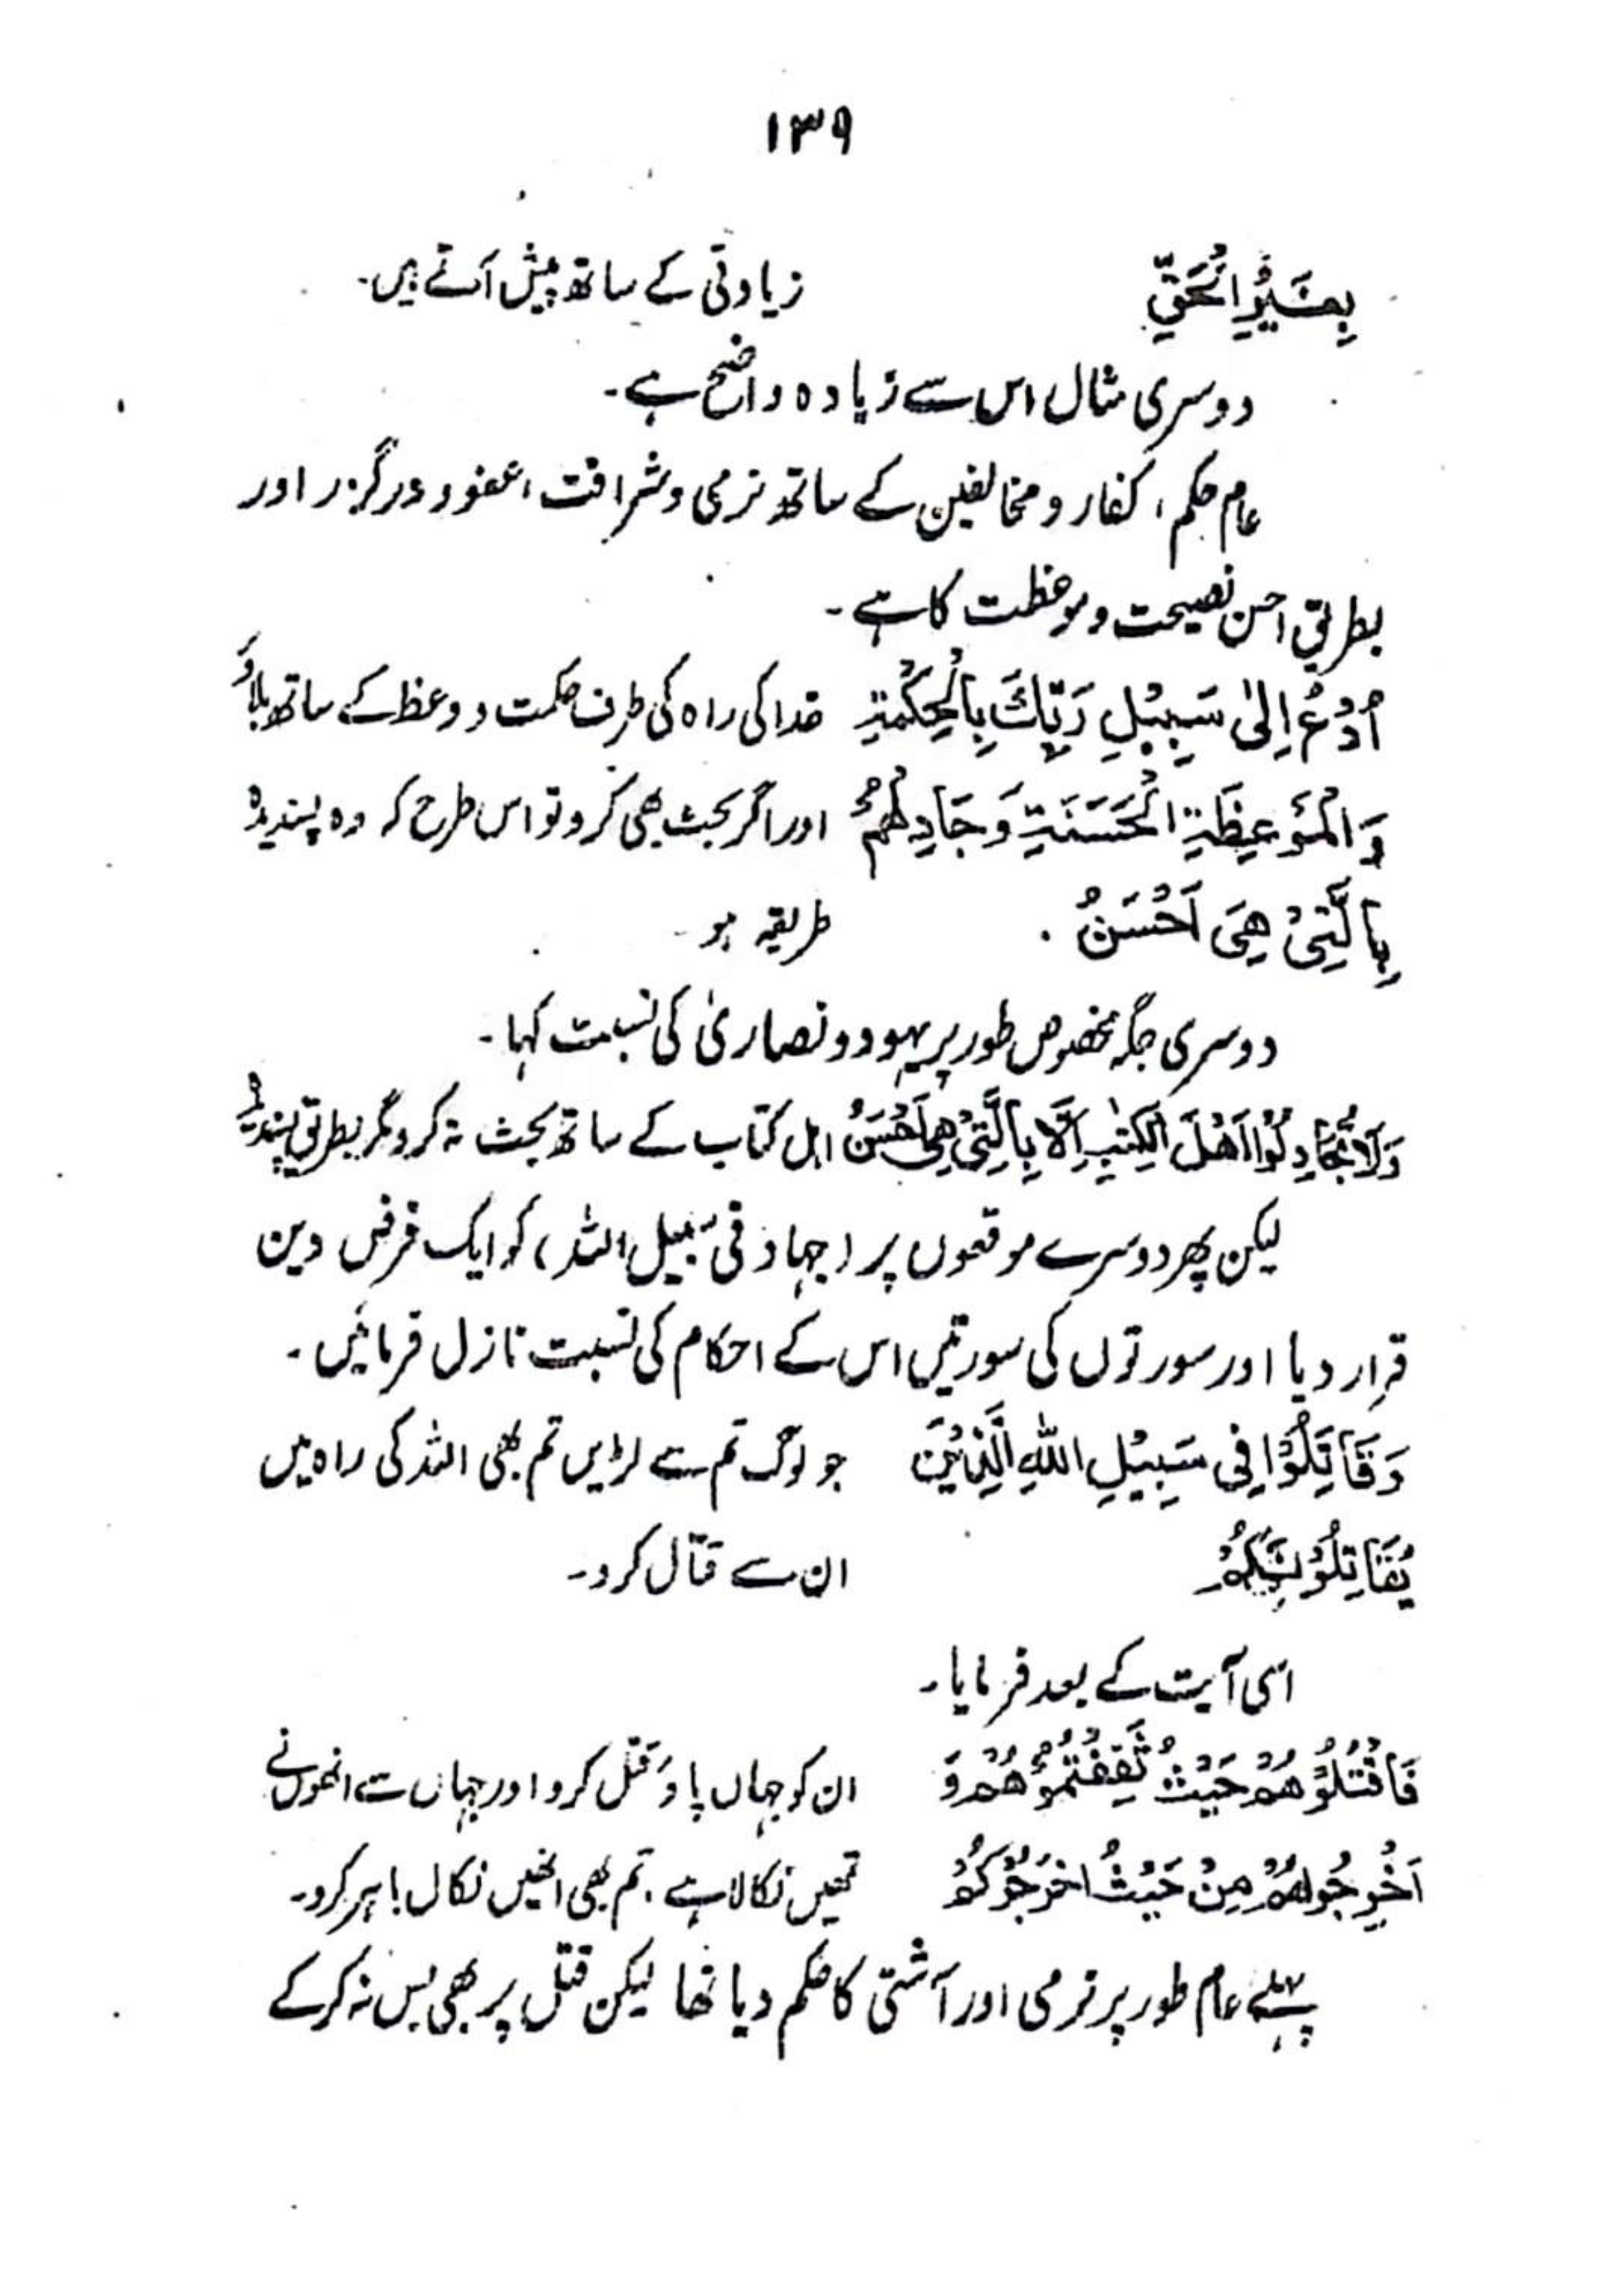 ۱۳۹
بِغَيْرِ الْحَقِّ زیادتی کے ساتھ پیش آتے ہیں۔
دوسری مثال اس سے زیادہ واضح ہے۔
عام حکم، کفار و مخالفین کے ساتھ نرمی و شرافت، عفو و درگزر اور
بطریق احسن نصیحت و موعظت کا ہے۔
اُدْعُ اِلىٰ سَبِيْلِ رَبِّكَ بِالْحِكْمَةِ خدا کی راہ کی طرف حکمت و وعظ کے ساتھ بلاؤ
وَالْمَوْعِظَةِ الْحَسَنَةِ وَجَادِلْهُمْ اور اگر بحث بھی کرو تو اس طرح کہ وہ پسندیدہ
بِالَّتِىْ هِىَ اَحْسَنُ . طریقہ ہو۔
دوسری جگہ مخصوص طور پر یہود و نصاریٰ کی نسبت کہا۔
وَلَا تُجَادِلُوْا اَهْلَ الْكِتٰبِ اِلَّا بِالَّتِىْ هِىَ اَحْسَنُ اہل کتاب کے ساتھ بحث نہ کرو مگر بطریق پسندیدہ
لیکن پھر دوسرے موقعوں پر (جہاد فی سبیل اللہ) کو ایک فرض دین
قرار دیا اور سورتوں کی سورتیں اس کے احکام کی نسبت نازل فرمائیں۔
وَقَاتِلُوْا فِى سَبِيْلِ اللّٰهِ الَّذِيْنَ جو لوگ تم سے لڑیں تم بھی اللہ کی راہ میں
يُقَاتِلُوْنَكُمْ ان سے قتال کرو۔
اسی آیت کے بعد فرمایا۔
فَاقْتُلُوْهُمْ حَيْثُ ثَقِفْتُمُوْهُمْ وَ ان کو جہاں پاؤ قتل کرو اور جہاں سے انھوں نے
اَخْرِجُوْهُمْ مِنْ حَيْثُ اَخْرَجُوْكُمْ تمھیں نکالا ہے۔ تم بھی انھیں نکال باہر کرو۔
پہلے عام طور پر نرمی اور آشتی کا حکم دیا تھا لیکن قتل پر بھی بس نہ کر کے